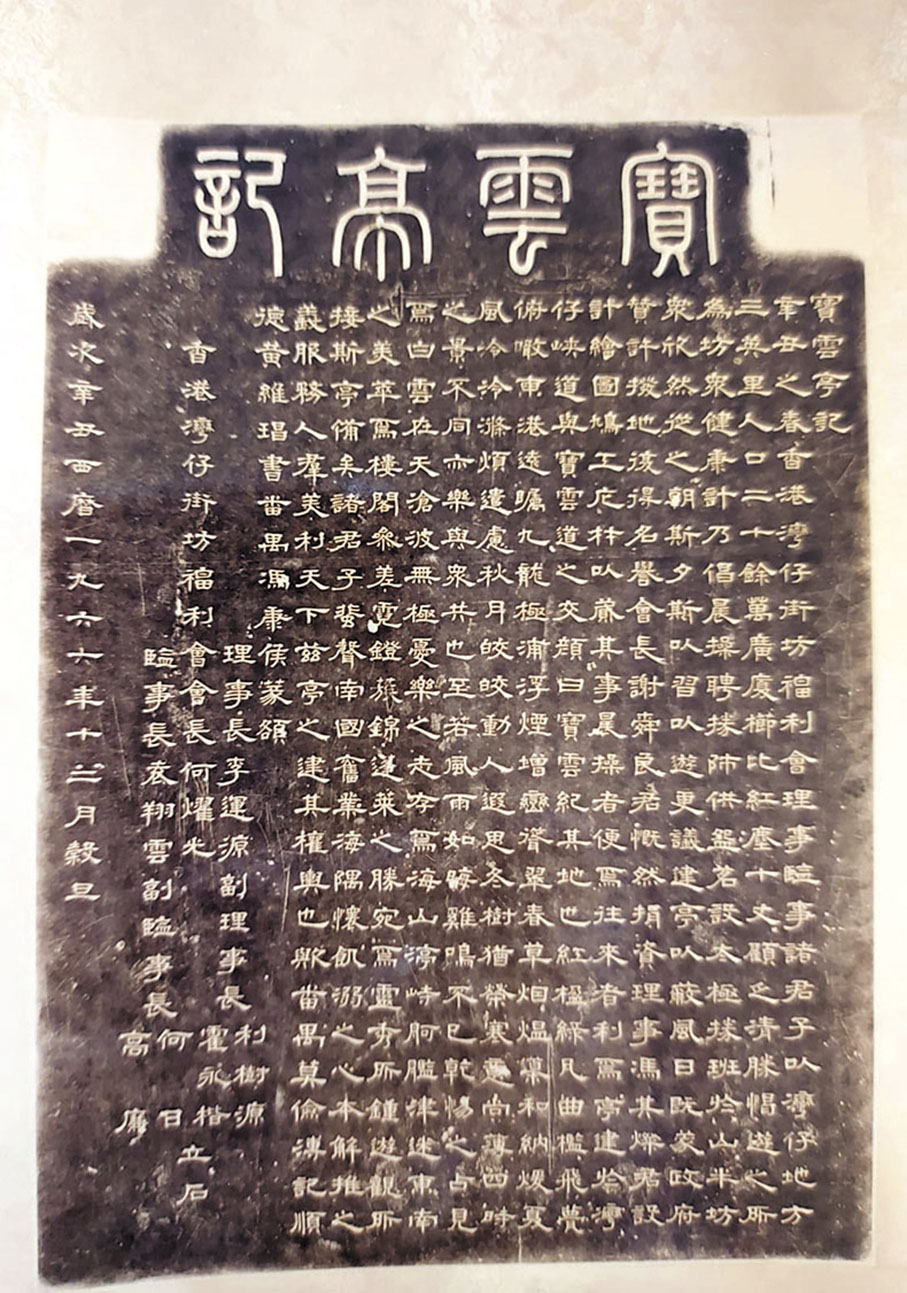 寶雲亭記
寶雲亭記
辛丑之春香港灣仔街坊福利會理事監事諸君子以灣仔地方
三英里人口二十餘萬廣廈櫛比紅塵十丈顧乏清勝愒遊之所
為坊眾健康計乃倡晨操聘師供盌茗設太極班於山半坊
眾欣然從之朝斯夕斯以習以遊更議建亭以蔽風日既蒙政府
贊許撥地復得名譽會長謝舜民君慨然捐資理事馮其燦君設
計繪圖鳩工庀材以蕆其事晨操者便焉往來者利焉亭建於灣
仔峽道與寶雲道之交顏曰寶雲紀其地也紅楹綠瓦曲檻飛甍
俯瞰東港遠矚九龍極浦浮煙增巒聳翠春草烟熅薰和納煖夏
風泠泠滌煩遣慮秋月皎皎動人遐思冬樹猶榮寒意尚薄四時
之景不同亦樂與眾共也至若風雨如晦雞鳴不已乾惕之占見
焉白雲在天滄波無極憂樂之志存焉海山渟峙舳艫津迷東南
之美萃焉樓閣參差霓鐙簇錦蓬萊之勝宛焉靈秀所鍾遊觀所
接斯亭備矣諸君子蜚聲南國奮業海隅懷飢溺之心本解推之
義服務人羣美利天下茲亭之建其權輿也歟番禺莫儉溥記順
德黃維琩書番禺馮康侯篆額
理事長李運源副理事長利樹源霍永楷
香港灣仔街坊福利會會長何燿光立石
監事長袁翔雲副監事長何日高
歲次辛丑西曆一九六六年十二月穀旦